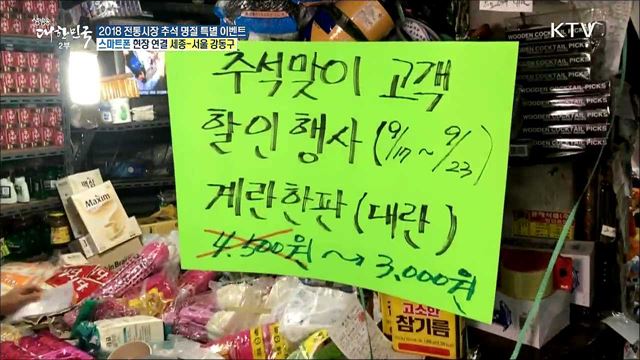 생방송 대한민국 2부
2018 전통시장 추석 명절 특별 이벤트
스마트폰 현장 연결 세종-서울 강동구
KTV
추석맞이 고객
할인행사 (9/17 ~ 9/23)
계란한판 (대란)
4.500원 → 3.000원
Maxim
WOODEN COCKTAIL PICKS
WOODEN COCKTAIL PICKS
WOODEN COCKTAIL PICKS
고소한
참기름